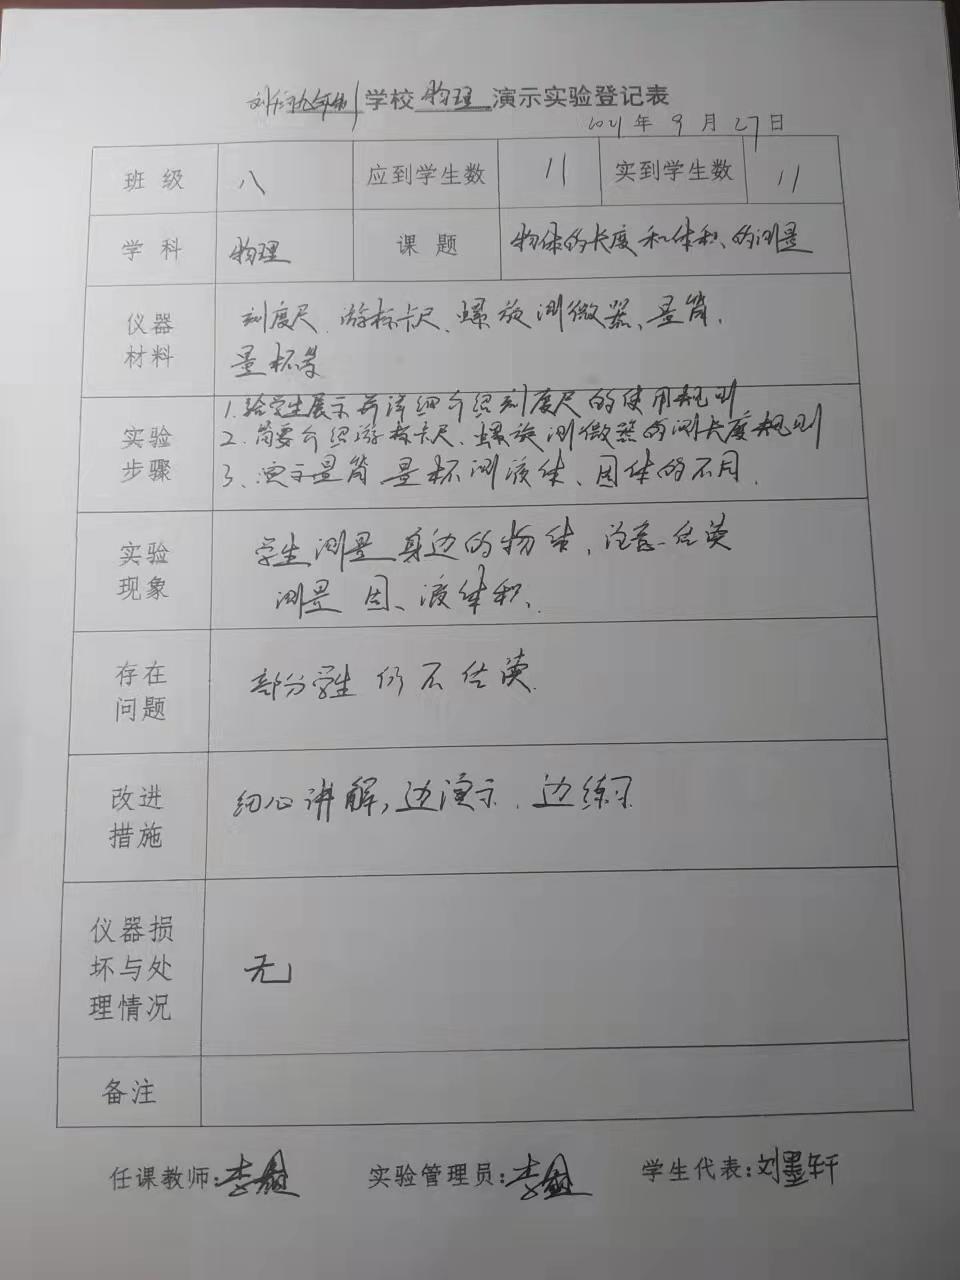 学校 物理 演示实验登记表
2021年 9 月 27 日
班 级 八 应到学生数 11 实到学生数 11
学 科 物理 课 题 物体的长度和体积、的测量
仪器
材料
刻度尺、游标卡尺、螺旋测微器、量筒、
量杯等
实验
步骤
1.给学生展示并详细介绍刻度尺的使用规则
2、简要介绍游标卡尺、螺旋测微器的测长度规则
3、演示量筒、量杯测液体、固体的不同.
实验
现象
学生测量身边的物体,注意估读
测量固、液体积.
存在
问题
部分学生仍不估读.
改进
措施
细心讲解,边演示、边练习
仪器损
坏与处
理情况
无
备注
任课教师: 实验管理员: 学生代表:刘墨轩